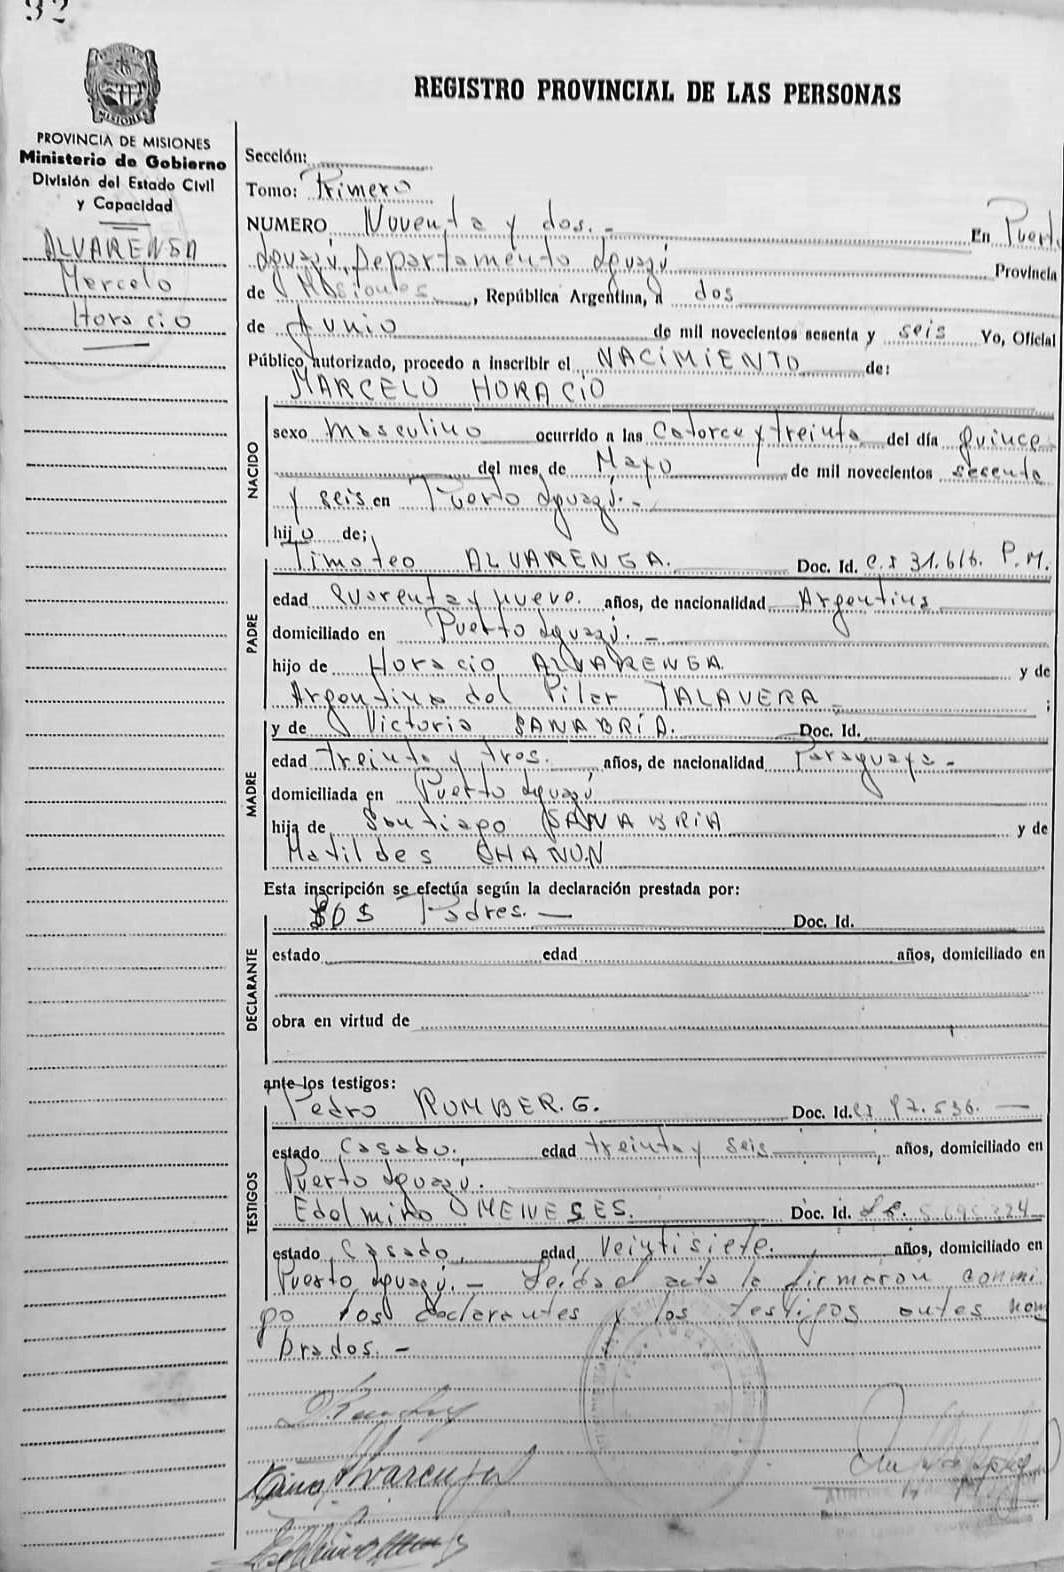 92
REGISTRO PROVINCIAL DE LAS PERSONAS
MISIONES
PROVINCIA DE MISIONES
Ministerio de Gobierno
División del Estado Civil
y Capacidad
ALVARENGA
Marcelo
Horacio
Sección:
Tomo: Primero
NUMERO Noventa y dos.- En Puerto
Iguazú, Departamento Iguazú Provincia
de Misiones, República Argentina, a dos
de Junio de mil novecientos sesenta y seis Yo, Oficial
Público autorizado, procedo a inscribir el NACIMIENTO de:
MARCELO HORACIO
NACIDO
sexo masculino ocurrido a las Catorce y treinta del día quince
del mes de Mayo de mil novecientos sesenta
y seis en Puerto Iguazú.-
hijo de;
Timoteo ALVARENGA. Doc. Id. C.I 31.616. P.M.
PADRE
edad Cuarenta y nueve. años, de nacionalidad Argentina
domiciliado en Puerto Iguazú.-
hijo de Horacio ALVARENGA y de
Argentina del Pilar TALAVERA ;
y de Victoria SANABRÍA. Doc. Id.
MADRE
edad treinta y tres. años, de nacionalidad Paraguaya-
domiciliada en Puerto Iguazú
hija de Santiago SANABRIA y de
Matildes CHANUN
Esta inscripción se efectúa según la declaración prestada por:
LOS Padres.- Doc. Id.
DECLARANTE
estado edad años, domiciliado en
obra en virtud de
ante los testigos:
Pedro RUMBER.G. Doc. Id. CI 97.536.-
TESTIGOS
estado Casado., edad treinta y seis años, domiciliado en
Puerto Iguazú.
Edelmiro MENESES. Doc. Id.
estado Casado, edad Veintisiete. años, domiciliado en
Puerto Iguazú.- Leída el acta la firmaron conmi
go los declarantes y los testigos antes nom
brados.-